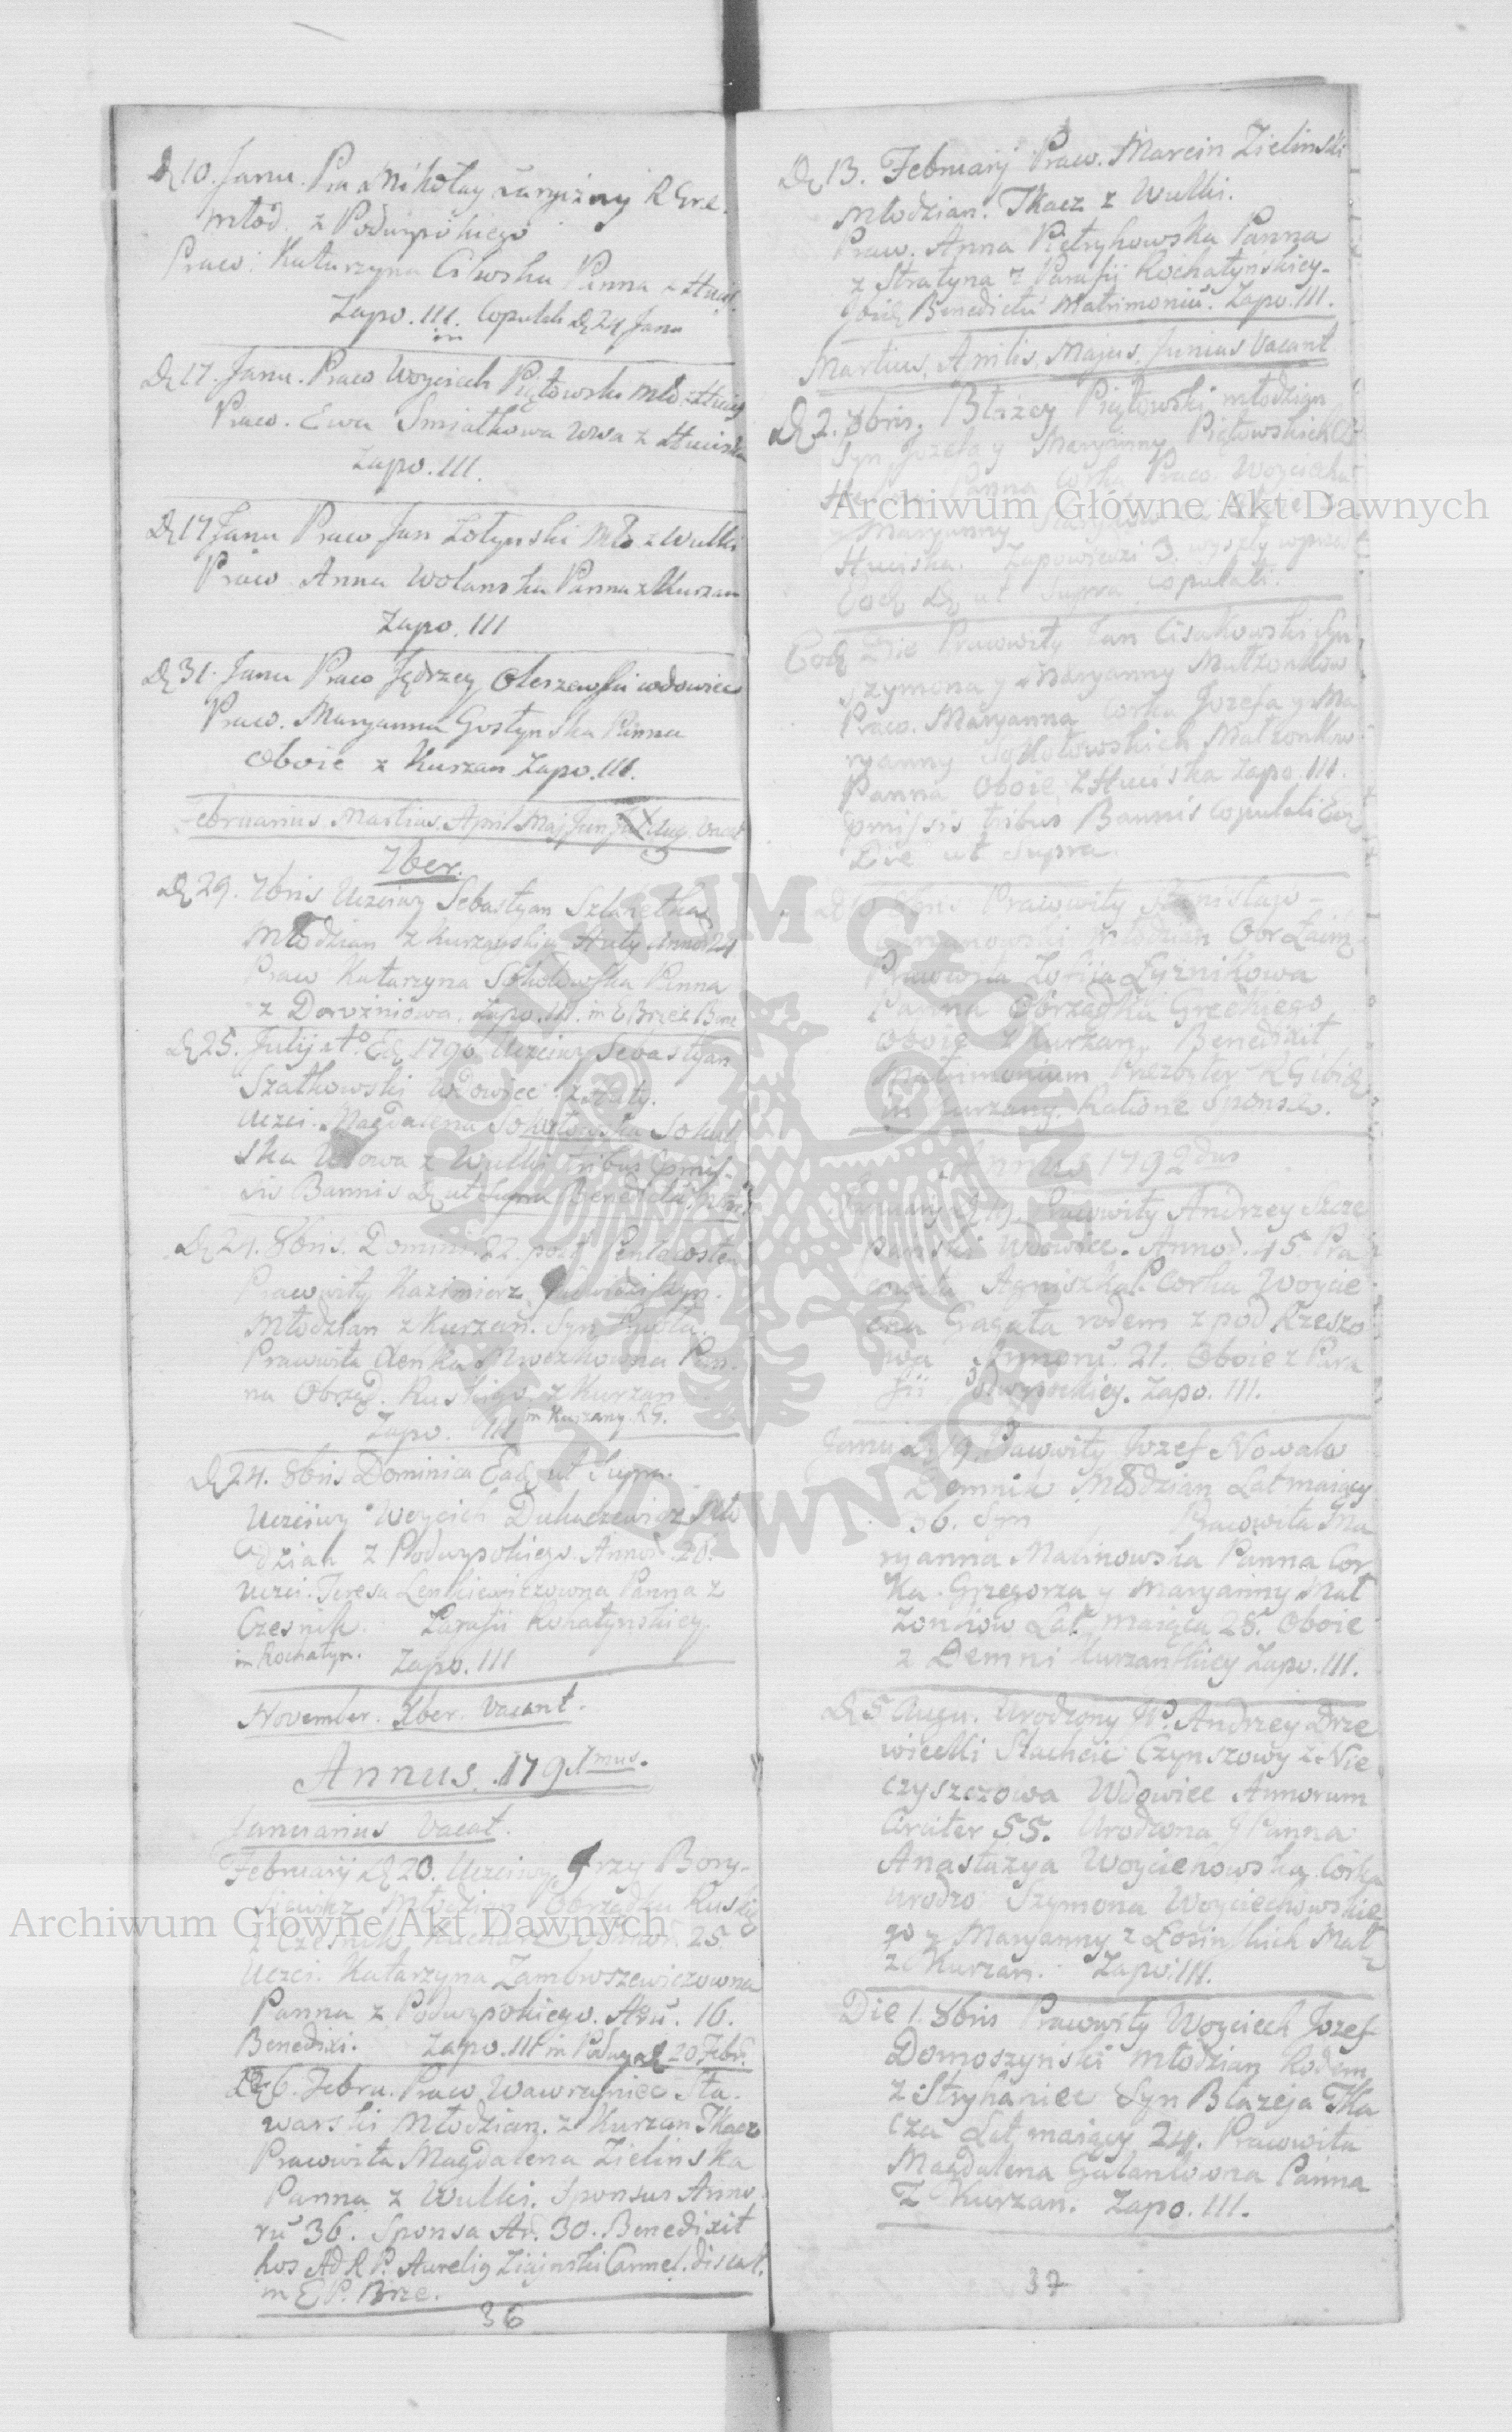 D 10. Janu. Pra Mikołay R Gre.
młod. z Podwysokiego
Praco. Katarzyna Panna z Huci
Zapo. III. Copulati D 24 Janu
D 17. Janu. Praco Woyciech Piętowski mło z Hucis
Praco. Ewa Smiałkowa Wwa z Huciska
Zapo. III.
D 17 Janu Praco Jan Zołynski Mło z Wulki
Praco Anna Wolanska Panna z Kurzan
Zapo. III
D 31. Janu Praco Jędrzey Olszewski wdowiec
Praco. Maryanna Gostynska Panna
Oboie z Kurzan Zapo. III.
Februarius Martius April Maj Jun Jul Aug. Vacat
7ber.
D 29. 7bris Uczciwy Sebastyan Szlachetka
Młodzian z Kurzanskiey Huty Annor 24
Praco Katarzyna Sokołowska Panna
z Zapo. III. in
D 25. Julij 1790 Uczciwy Sebastyan
Szatkowski Wdowiec z Huty.
Uczci. Magdalena Sokołowska Sokol
ska Wdowa z Wulki tribus Pmis-
sis Bannis D ut Supra
D 24. 8bris. Domini. 22 post Pentecosten
Pracowity Kazimierz
Młodzian z Kurzan. Syn Pawła.
Pracowita Panna
na Obrząd. Ruskiego z Kurzan
Zapo. III in Kurzany RG.
D 24. 8bris Dominica Ead ut Supra.
Uczciwy Woyciech Mło
dzian z Podwysokiego Annor. 20.
Uczci. Teresa Lenkiewiczowna Panna z
Czesnik. Parafii Rohatynskiey
in Rochatyn. Zapo. III
November. Xber. Vacant.
Annus. 1791mus.
Januarius Vacat.
Februarij D 20. Uczciwy Grzy Bory-
siewicz Młodzian Obrządku Ruski
z Czesnik 25.
Uczci. Katarzyna
Panna z Podwysokiego. 16.
Benedixi. Zapo. III in 20 Febr.
D 6. Febru. Praco Wawrzyniec Sta-
warski Młodzian. z Kurzan Tkacz
Pracowita Magdalena Zielinska
Panna z Wulki. Sponsus Anno
rū 36. Sponsa An. 30. Benedixit
hos Ad R P. Aureliy Carmel. discal.
in E P. Brze.
36
D 13. Februarij Praw. Marcin Zielinski
Młodzian. Tkacz z Wulki.
Praw. Anna Pietrykowska Panna
z Stratyna z Parafij Rochatynskiey-
Ibid Benedictū Matrimoniū. Zapo. III.
Martius, Aprilis, Majus, Junius Vacant
D 2. 8bris. Błażey Piętowski młodzian
Syn Jozefa y Maryanny Piętowskich
Panna Corka Praco Woyciecha
y Maryanny
Huciska. Zapowiedzi 3. wyszły
Eod D ut Supra Copulati.
Eod Die Pracowity Jan Cisakowski Syn
Szymona y Maryanny Małżonkow
Praco. Maryanna Corka Jozefa y Ma
ryanny Sokołowskich Małżonkow
Panna Oboie z Huciska Zapo. III.
Pmissis tribus Bannis Copulati Ead
Die ut Supra.
D 10 8bris Pracowity Stanisław
Młodzian Obr Łaciń
Pracowita Zofija Łyżnikowa
Panna Obrządku Greckiego
Oboie z Kurzan. Benedixit
Matrimonium Prezbyter RG ibid
in Kurzany. Ratione Sponsae.
Annus 1792dus
Januarij D 19. Pracowity Andrzey Szcze
panski Wdowiec. Annor. 45. Pra
cowita Agniszka P. Corka Woycie
cha Gagata rodem z pod Rzeszo
wa Annorū. 21. Oboie z Para
fii Podwysockiey. Zapo. III.
Janu. D 19. Pracowity Jozef Nowak
Demnik Młodzian Lat maiący
36. Syn Pracowita Ma
ryanna Malinowska Panna Cor
ka Grzegorza y Maryanny Mał
żonkow Lat maiąca 28. Oboie
z Demni Kurzanskiey Zapo. III.
D 5 Augu. Urodzony JP. Andrzey Drze
wiecki Slachcic Czynszowy z Nie
czyszczowa Wdowiec Annorum
Circiter 55. Urodzona J Panna
Anastazya Woycienowska Corka
Urodzo Szymona Woyciechowskie
go y Maryanny z Łosinskich Małż
z Kurzan. Zapo. III.
Die 1. 8bris Pracowity Woyciech Jozef
Domoszynski Młodzian Rodem
z Stryhaniec Syn Błazeja Tka
cza Lat maiący 24. Pracowita
Magdalena Galantowna Panna
Z Kurzan. Zapo. III.
37
Archiwum Główne Akt Dawnych
Archiwum Główne Akt Dawnych
ARCHIWUM GŁÓWNE AKT DAWNYCH